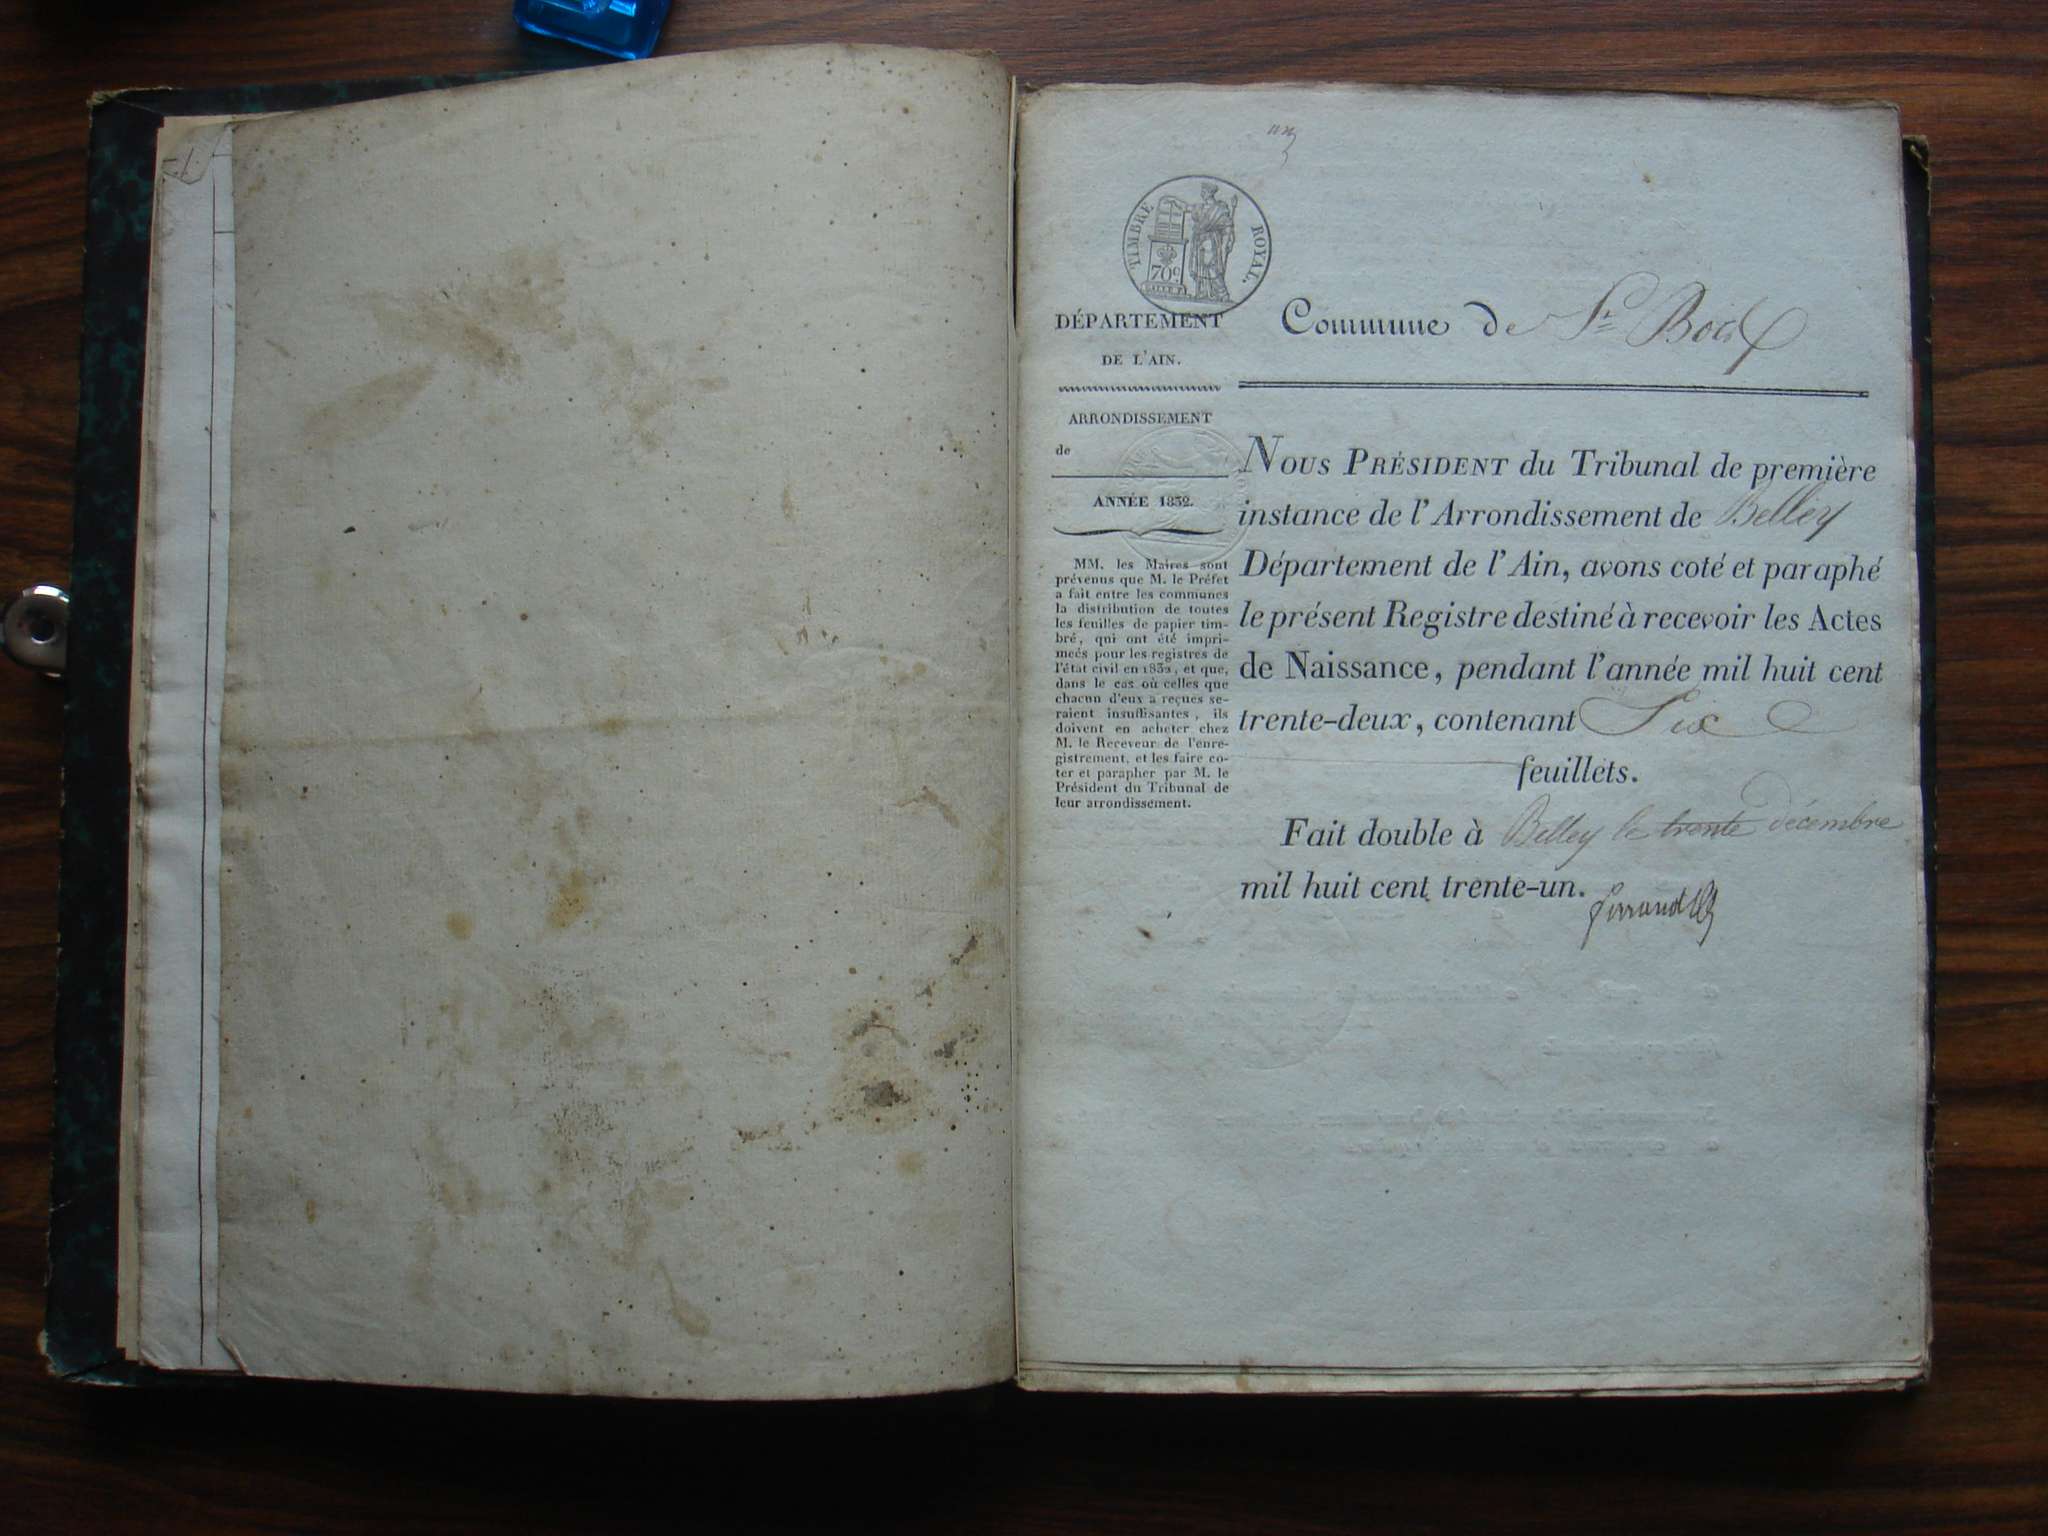 un
TIMBRE ROYAL.
70c
DÉPARTEMENT
DE L'AIN.
Commune de St Bois
ARRONDISSEMENT
de
ANNÉE 1832.
MM. les Maires sont
prévenus que M. le Préfet
a fait entre les communes
la distribution de toutes
les feuilles de papier tim-
bré, qui ont été impri-
meés pour les registres de
l'état civil en 1832, et que,
dans le cas où celles que
chacun d'eux a reçues se-
raient insuffisantes, ils
doivent en acheter chez
M. le Receveur de l'enre-
gistrement, et les faire co-
ter et parapher par M. le
Président du Tribunal de
leur arrondissement.
NOUS PRÉSIDENT du Tribunal de première
instance de l'Arrondissement de Belley
Département de l'Ain, avons coté et paraphé
le présent Registre destiné à recevoir les Actes
de Naissance, pendant l'année mil huit cent
trente-deux, contenant Six
feuillets.
Fait double à Belley le trente décembre
mil huit cent trente-un.